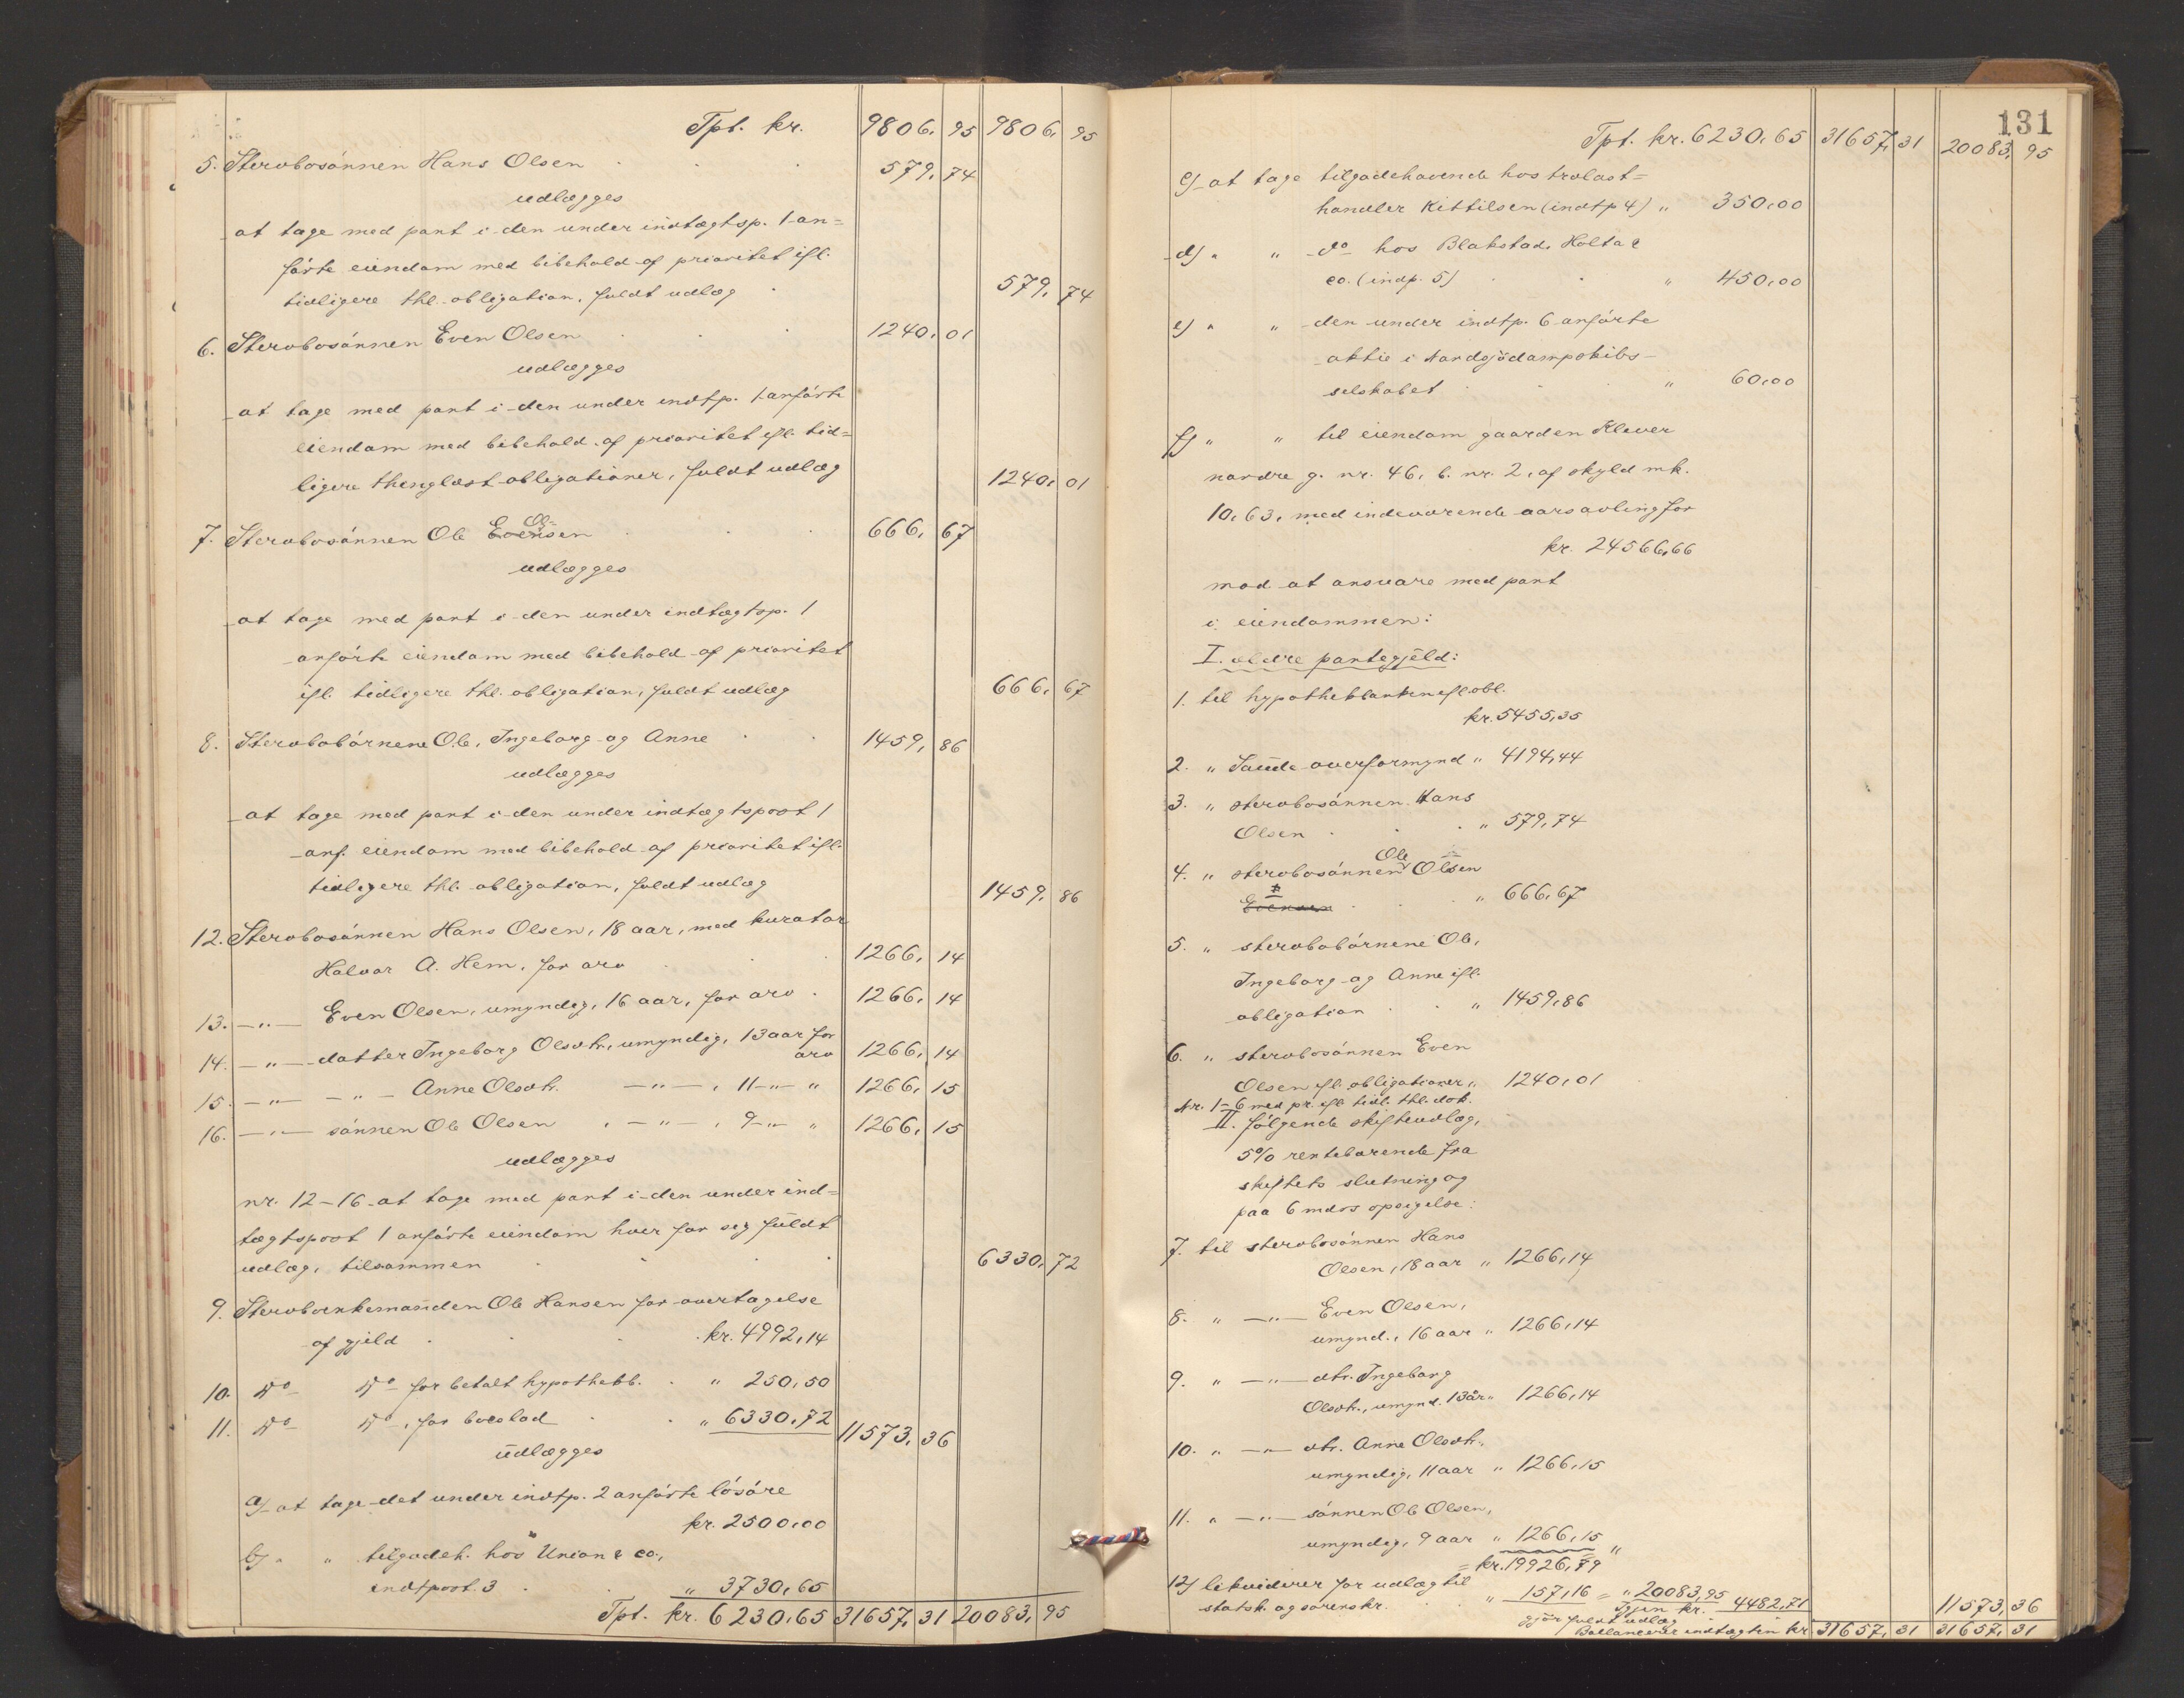 Tpt. kr. 9806,95 9806,95
5. Stervbosønnen Hans Olsen 579,74
udlægges
at tage med pant i den under indtægtsp. 1 an=
førte eiendom med bibehold af prioritet ifl.
tidligere thl. obligation, fuldt udlæg 579,74
6. Stervbosønnen Even Olsen 1240,01
udlægges
at tage med pant i den under indtp. 1 anførte
eiendom med bibehold af prioritet ifl. tid=
ligere thinglæst obligationer, fuldt udlæg 1240,01
7. Stervbosønnen Ole Evensen 666,67
Ol=
udlægges
at tage med pant i den under indtægtsp. 1
anførte eiendom med bibehold af prioritet
ifl. tidligere thl. obligation, fuldt udlæg 666,67
8. Stervbobørnene Ole, Ingeborg og Anne 1459,86
udlægges
at tage med pant i den under indtægtspost 1
anf. eiendom med bibehold af prioritet ifl.
tidligere thl. obligation, fuldt udlæg 1459,86
12. Stervbosønnen Hans Olsen, 18 aar, med kurator
Halvor A. Hem, for arv 1266,14
13. —"— Even Olsen, umyndig, 16 aar, for arv 1266,14
14. —"— datter Ingeborg Olsdtr., umyndig, 13 aar for
arv 1266,14
15. —"— —"— Anne Olsdtr. —"—, 11 —"— " 1266,15
16. —"— sønnen Ole Olsen, —"—, 9 —"— " 1266,15
udlægges
nr. 12–16 at tage med pant i den under ind=
tægtspost 1 anførte eiendom hver for seg fuldt
udlæg, tilsammen 6330,72
9. Stervboenkemanden Ole Hansen for overtagelse
af gjeld kr. 4992,14
10. Do Do for betalt hypothekb. " 250,50
11. Do Do, for boeslod " 6330,72 11573,36
udlægges
a) at tage det under indtp. 2 anførte løsøre
kr. 2500,00
b) " " tilgodeh. hos Union & co.,
indtpost. 3 " 3730,65
Tpt. kr. 6230,65 31657,31 20083,95
131
Tpt. kr. 6230,65 31657,31 20083,95
c) at tage tilgodehavende hos trælast=
handler Kittilsen (indtp 4) " 350,00
d) " " do hos Blakstad, Holta &
co. (indp. 5) " 450,00
e) " " den under indtp. 6 anførte
aktie i Nordsjødampskibs-
selskabet " 60,00
f) " " til eiendom gaarden Klever
nordre g. nr. 46, b. nr. 2, af skyld mk.
10,63, med indeværende aars avling for
kr. 24566,66
mod at ansvare med pant
i eiendommen:
I. ældre pantegjeld:
1. til hypothekbanken ifl. obl.
kr. 5455,35
2. " Saude overformynd " 4194,44
3. " stervbosønnen Hans
Olsen " 579,74
4. " stervbosønnen Ole Olsen
Evensen " 666,67
5. " stervbobørnene Ole,
Ingeborg og Anne ifl.
obligation " 1459,86
6. " stervbosønnen Even
Olsen ifl. obligationer " 1240,01
Nr. 1–6 med pr. ifl. tidl. thl. dok.
II. følgende skifteudlæg,
5% rentebærende fra
skiftets slutning og
paa 6 mdrs opsigelse:
7. til stervbosønnen Hans
Olsen, 18 aar " 1266,14
8. " —"— Even Olsen,
umynd., 16 aar " 1266,14
9. " —"— dtr. Ingeborg
Olsdtr., umynd. 13 år " 1266,14
10. " —"— dtr. Anne Olsdtr.,
umyndig, 11 aar " 1266,15
11. " —"— sønnen Ole Olsen,
umyndig, 9 aar " 1266,15
= kr. 19926,79
12) likviderer for udlæg til
statsk. og sorenskr. " 157,16 = " 20083,95
Igjen kr. 4482,71 11573,36
gjør fuldt udlæg
Ballancerer indtægten kr 31657,31 31657,31